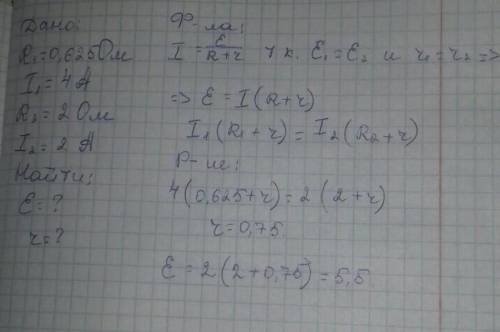 Дано:
R₁=0,625 Ом
I₁=4 А
R₂=2 Ом
I₂=2 А
Найти:
ℰ=?
r=?
Ф-ла:
I = ℰ/(R+r) т.к. ℰ₁=ℰ₂ и r₁=r₂ =>
=> ℰ = I(R+r)
I₁(R₁+r) = I₂(R₂+r)
Р-ие:
4(0,625+r)=2(2+r)
r=0,75
ℰ = 2(2+0,75)=5,5